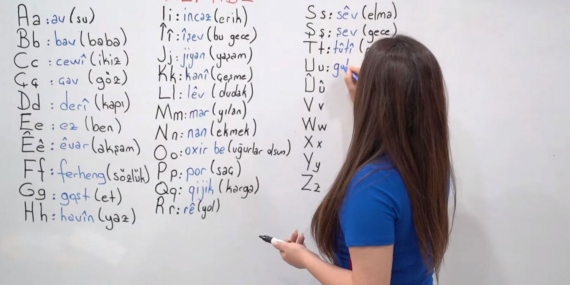 Aa: av (su)
Bb: bav (baba)
Cc: cewî (ikiz)
Çç: çav (göz)
Dd: derî (kapı)
Ee: ez (ben)
Êê: êvar (akşam)
Ff: ferheng (sözlük)
Gg: goşt (et)
Hh: havîn (yaz)
Ii: incaz (erik)
Îî: îşev (bu gece)
Jj: jiyan (yaşam)
Kk: kanî (çeşme)
Ll: lêv (dudak)
Mm: mar (yılan)
Nn: nan (ekmek)
Oo: oxir be (uğurlar olsun)
Pp: por (saç)
Qq: qijik (karga)
Rr: rê (yol)
Ss: sêv (elma)
Şş: şev (gece)
Tt: tûtî
Uu:
Ûû
Vv
Ww
Xx
Yy
Zz